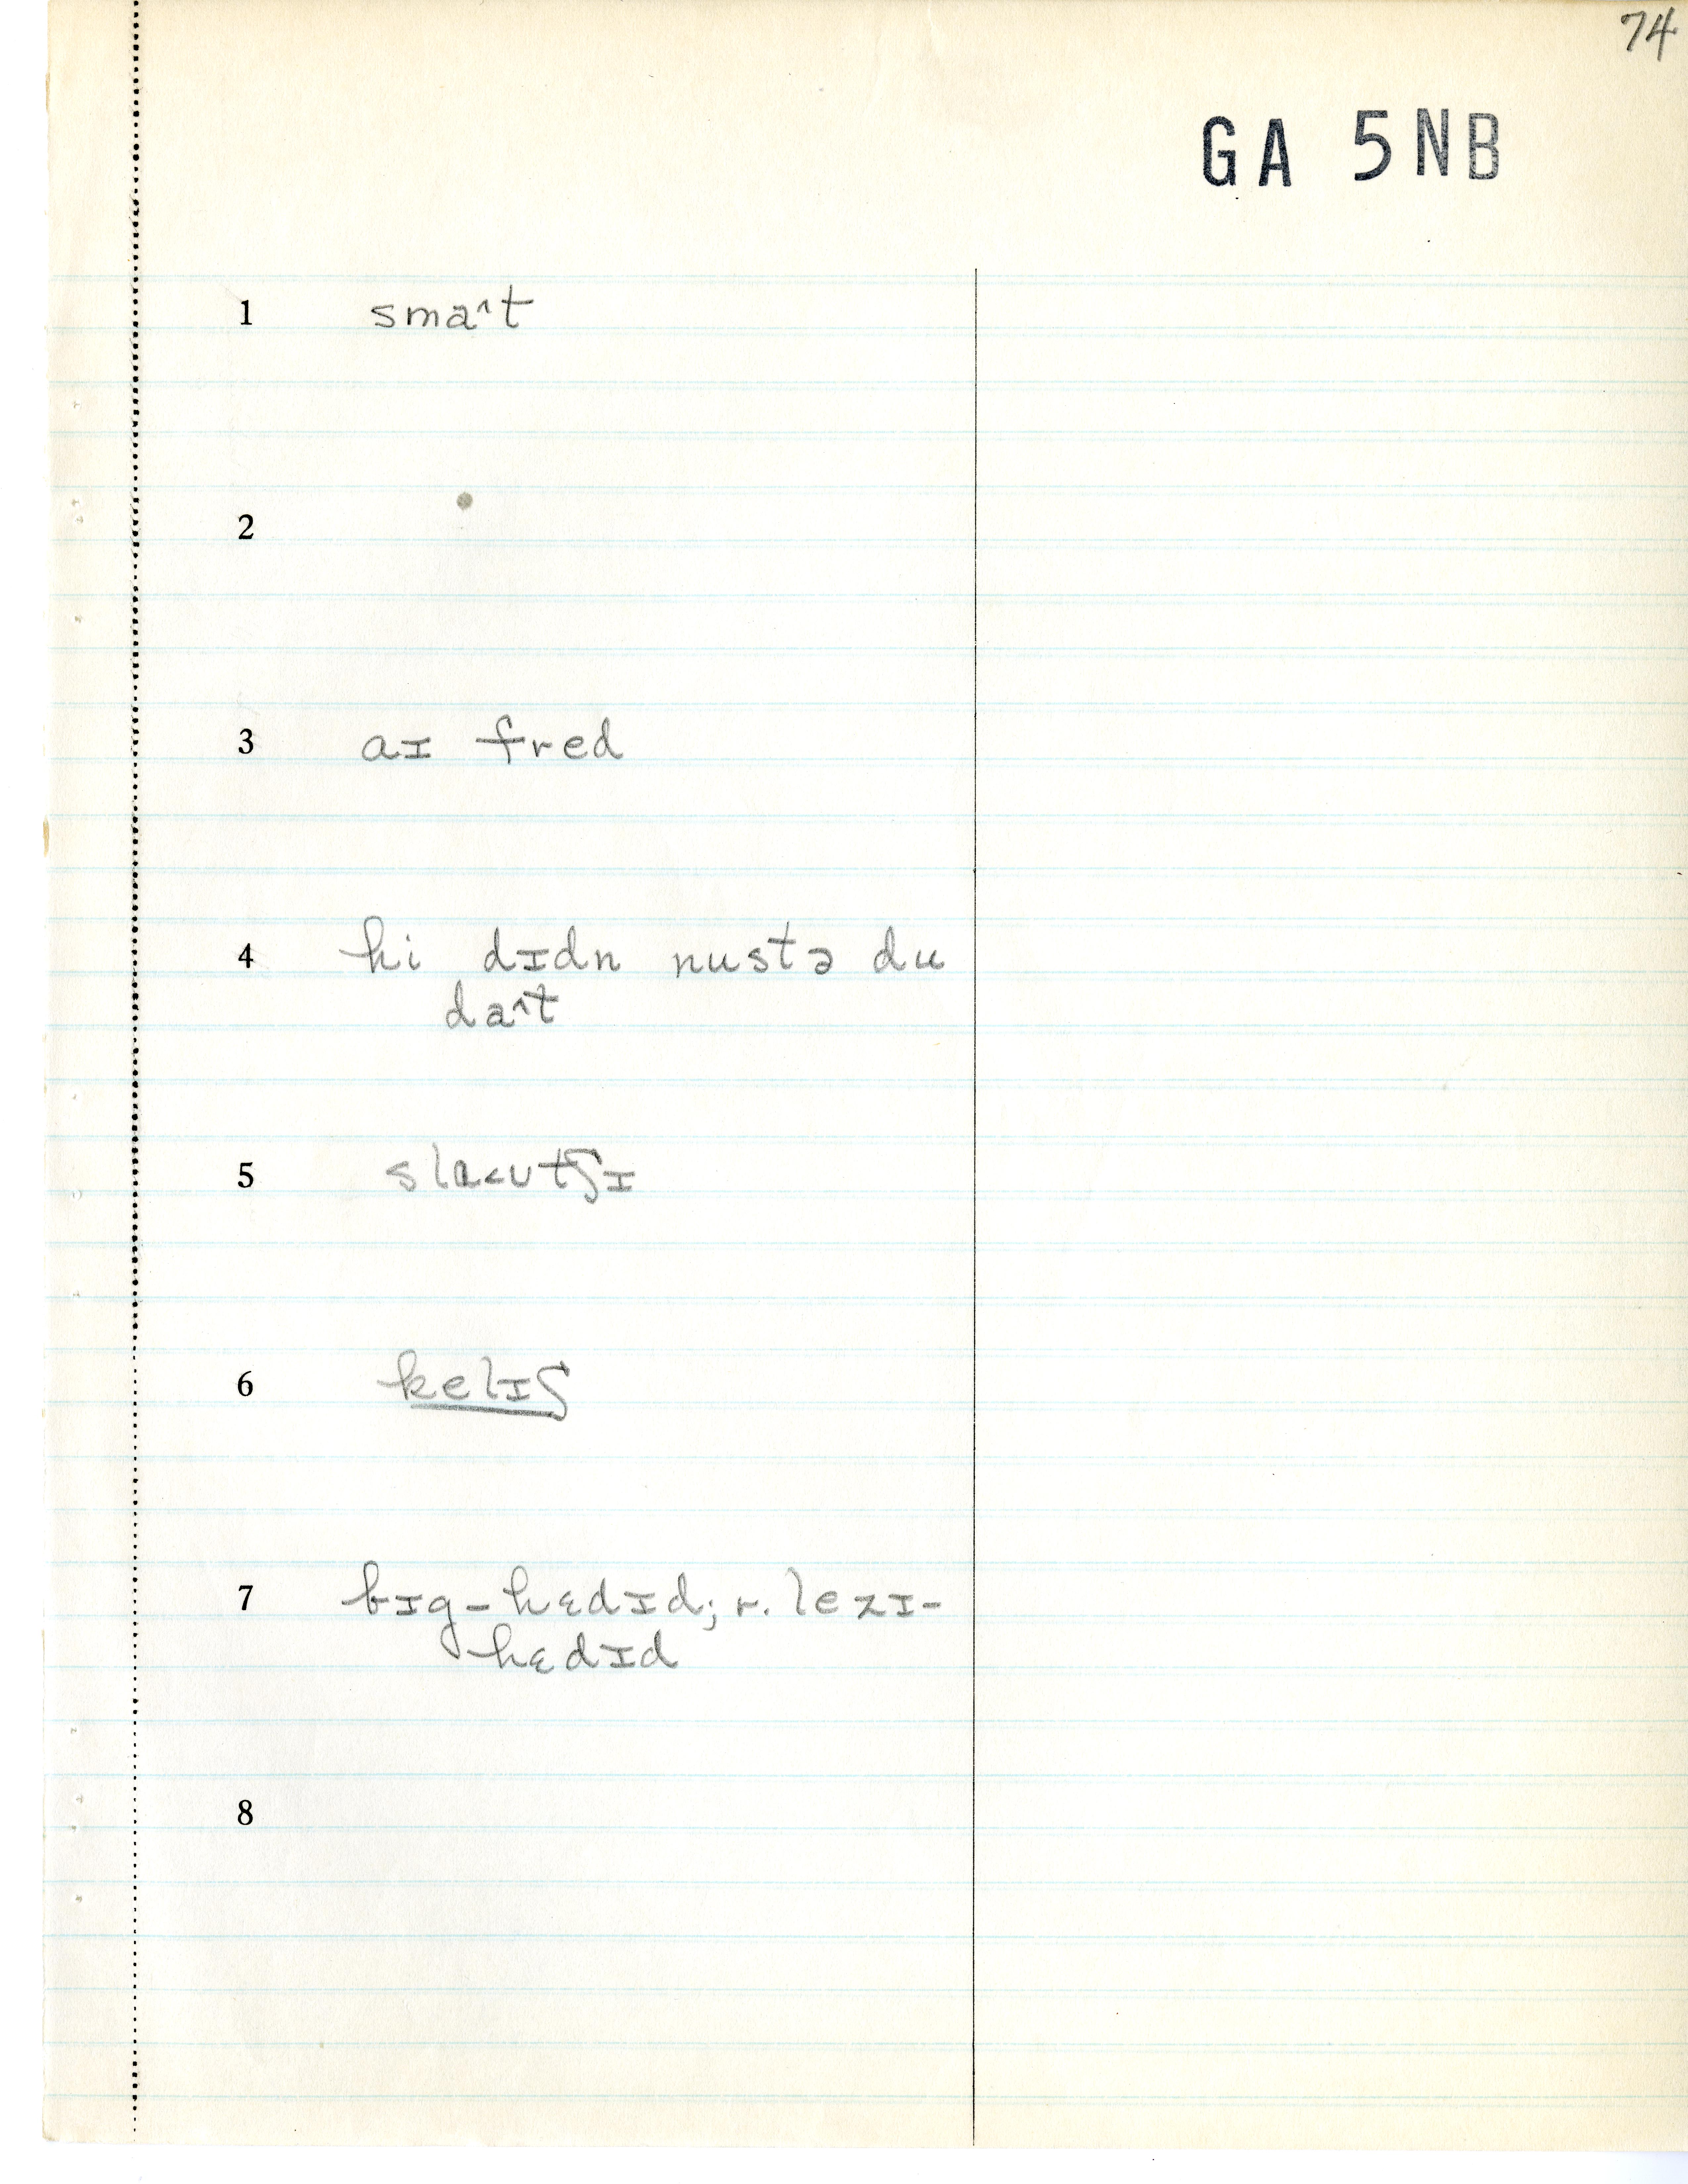 74
GA 5NB
1 sma^t
2
3 aɪ fred
4 hi dɪdn nustə du
da^t
5 sla<ʊtʃɪ
6 kelɪʃ
7 bɪg-hɛdɪd; r. lezɪ-
hɛdɪd
8